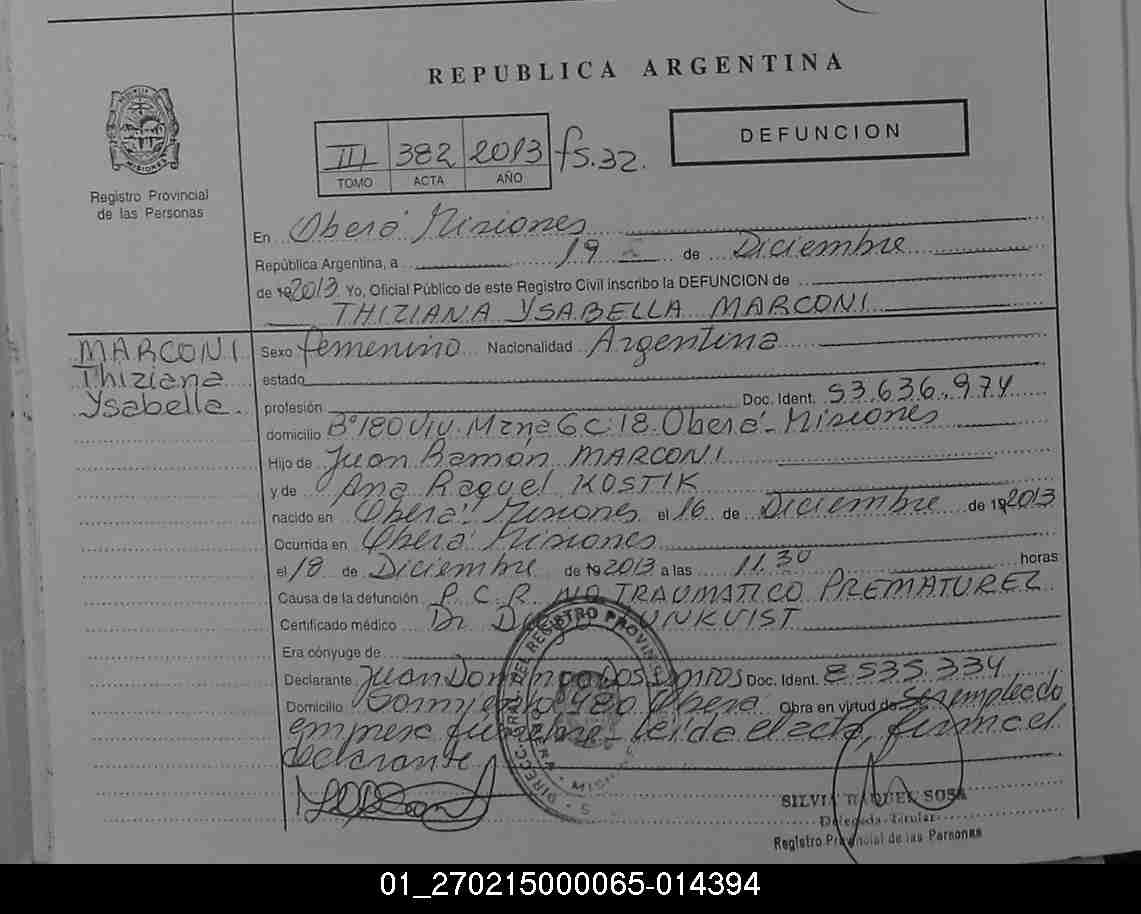 REPUBLICA ARGENTINA
DEFUNCION
III 382 2013 fs. 32.
TOMO ACTA AÑO
Registro Provincial
de las Personas
En Oberá Misiones
República Argentina, a 19 de Diciembre
de 19 2013 Yo, Oficial Público de este Registro Civil inscribo la DEFUNCION de
THIZIANA YSABELLA MARCONI
MARCONI
Thiziana
Ysabella.
Sexo femenino Nacionalidad Argentina
estado
profesión Doc. Ident. 53.636.974
domicilio Bº 180 Viv. Mzna 6 C. 18. Oberá - Misiones
Hijo de Juan Ramón MARCONI
y de Ana Raquel KOSTIK
nacido en Oberá - Misiones el 16 de Diciembre de 19 2013
Ocurrida en Oberá Misiones
el 18 de Diciembre de 19 2013 a las 11.30 horas
Causa de la defunción P.C.R. NO TRAUMATICO PREMATUREZ
Certificado médico Dr.
Era cónyuge de
Declarante Juan Domingo Dos Santos Doc. Ident. 8535.334
Domicilio Sarmiento 980 Oberá Obra en virtud de ser empleado
empresa fúnebre - leída el acta, firma el
declarante
DIRECC. GRAL. DEL REGISTRO PROVINC
SILVIA RAQUEL SOSA
Delegada Titular
Registro Provincial de las Personas
01_270215000065-014394